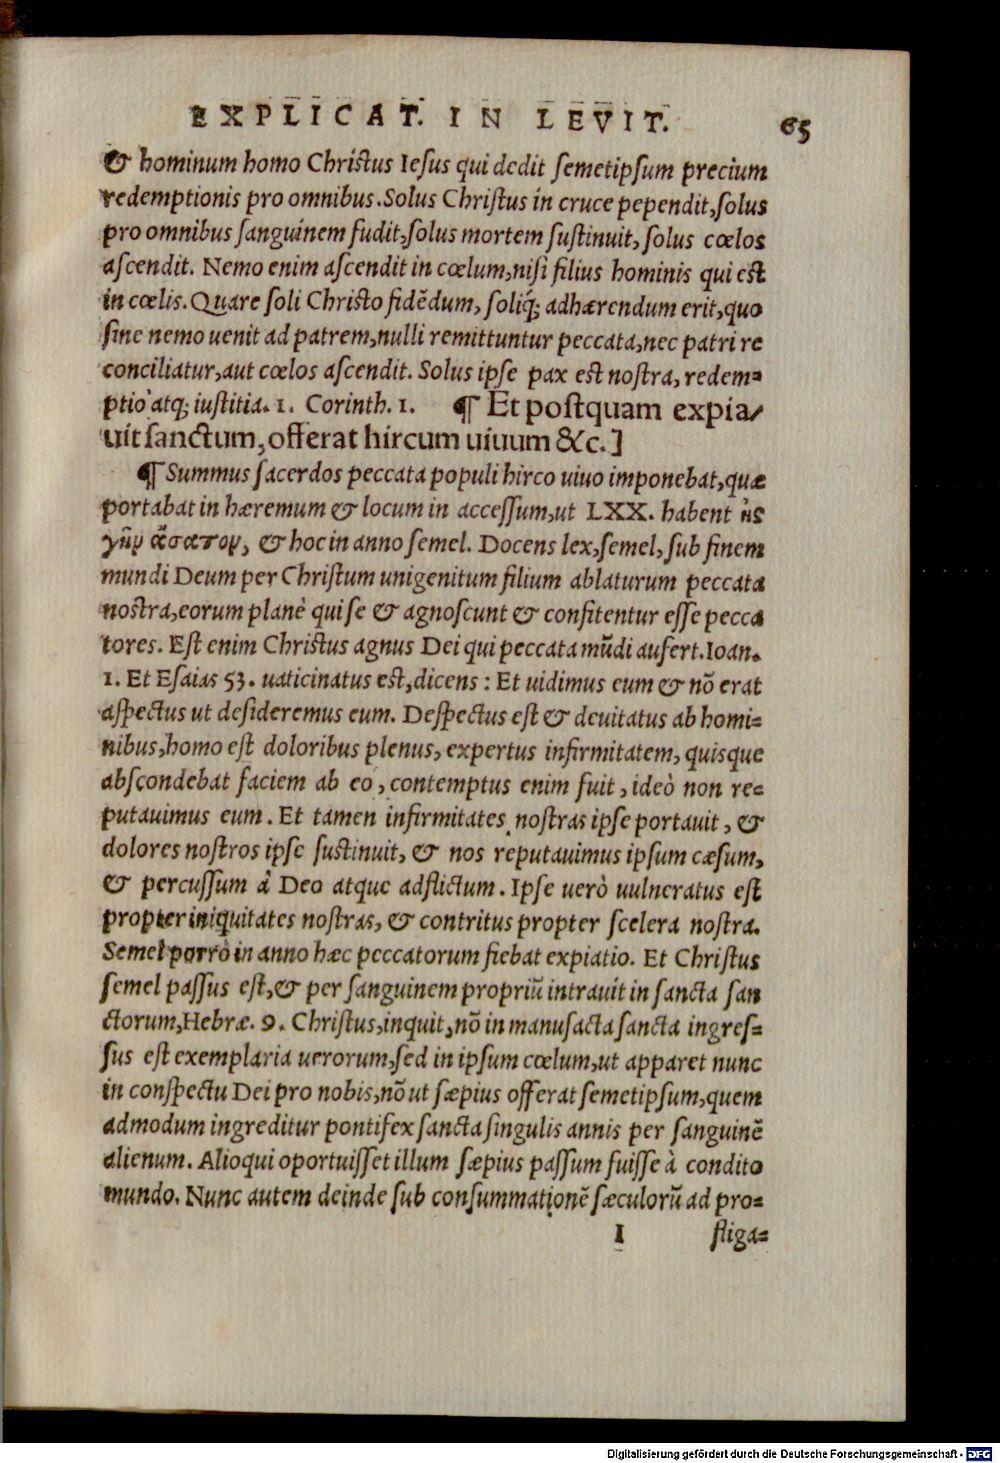 EXPLICAT. IN LEVIT. 65
& hominum homo Christus Iesus qui dedit semetipsum precium
redemptionis pro omnibus. Solus Christus in cruce pependit, solus
pro omnibus sanguinem fudit, solus mortem sustinuit, solus cœlos
ascendit. Nemo enim ascendit in cœlum, nisi filius hominis qui est
in cœlis. Quare soli Christo fidēdum, soliq́; adhærendum erit, quo
sine nemo uenit ad patrem, nulli remittuntur peccata, nec patri re
conciliatur, aut cœlos ascendit. Solus ipse pax est nostra, redem-
ptio atq; iustitia. 1. Corinth. 1. ¶ Et postquam expia/
uit sanctum, offerat hircum uiuum &c.]
¶ Summus sacerdos peccata populi hirco uiuo imponebat, quæ
portabat in hæremum & locum in accessum, ut LXX. habent ἠς
γῆν ἄσατον, & hoc in anno semel. Docens lex, semel, sub finem
mundi Deum per Christum unigenitum filium ablaturum peccata
nostra, eorum planè qui se & agnoscunt & confitentur esse pecca
tores. Est enim Christus agnus Dei qui peccata mūdi aufert. Ioan.
1. Et Esaias 53. uaticinatus est, dicens : Et uidimus eum & nō erat
aspectus ut desideremus eum. Despectus est & deuitatus ab homi-
nibus, homo est doloribus plenus, expertus infirmitatem, quisque
abscondebat faciem ab eo, contemptus enim fuit, ideò non re-
putauimus eum. Et tamen infirmitates nostras ipse portauit, &
dolores nostros ipse sustinuit, & nos reputauimus ipsum cæsum,
& percussum à Deo atque adflictum. Ipse uerò uulneratus est
propter iniquitates nostras, & contritus propter scelera nostra.
Semel porrò in anno hæc peccatorum fiebat expiatio. Et Christus
semel passus est, & per sanguinem propriū intrauit in sancta san
ctorum, Hebræ. 9. Christus, inquit, nō in manufacta sancta ingres-
sus est exemplaria uerorum, sed in ipsum cœlum, ut apparet nunc
in conspectu Dei pro nobis, nō ut sæpius offerat semetipsum, quem
admodum ingreditur pontifex sancta singulis annis per sanguinē
alienum. Alioqui oportuisset illum sæpius passum fuisse à condito
mundo. Nunc autem deinde sub consummationē sæculorū ad pro-
I fliga-
Digitalisierung gefördert durch die Deutsche Forschungsgemeinschaft - DFG